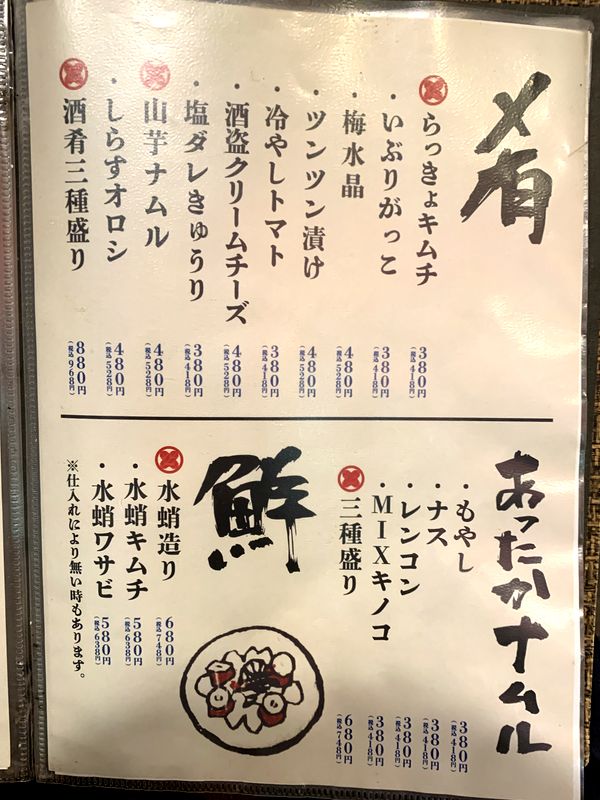 肴
らっきょキムチ 380円(税込418円)
・いぶりがっこ 380円(税込418円)
・梅水晶 480円(税込528円)
・ツンツン漬け 480円(税込528円)
・冷やしトマト 380円(税込418円)
・酒盗クリームチーズ 480円(税込528円)
・塩ダレきゅうり 380円(税込418円)
山芋ナムル 480円(税込528円)
・しらすオロシ 480円(税込528円)
酒肴三種盛り 880円(税込968円)
あったかナムル
・もやし 380円(税込418円)
・ナス 380円(税込418円)
・レンコン 380円(税込418円)
・MIXキノコ 380円(税込418円)
三種盛り 680円(税込748円)
鮮
水蛸造り 680円(税込748円)
・水蛸キムチ 580円(税込638円)
・水蛸ワサビ 580円(税込638円)
※仕入れにより無い時もあります。